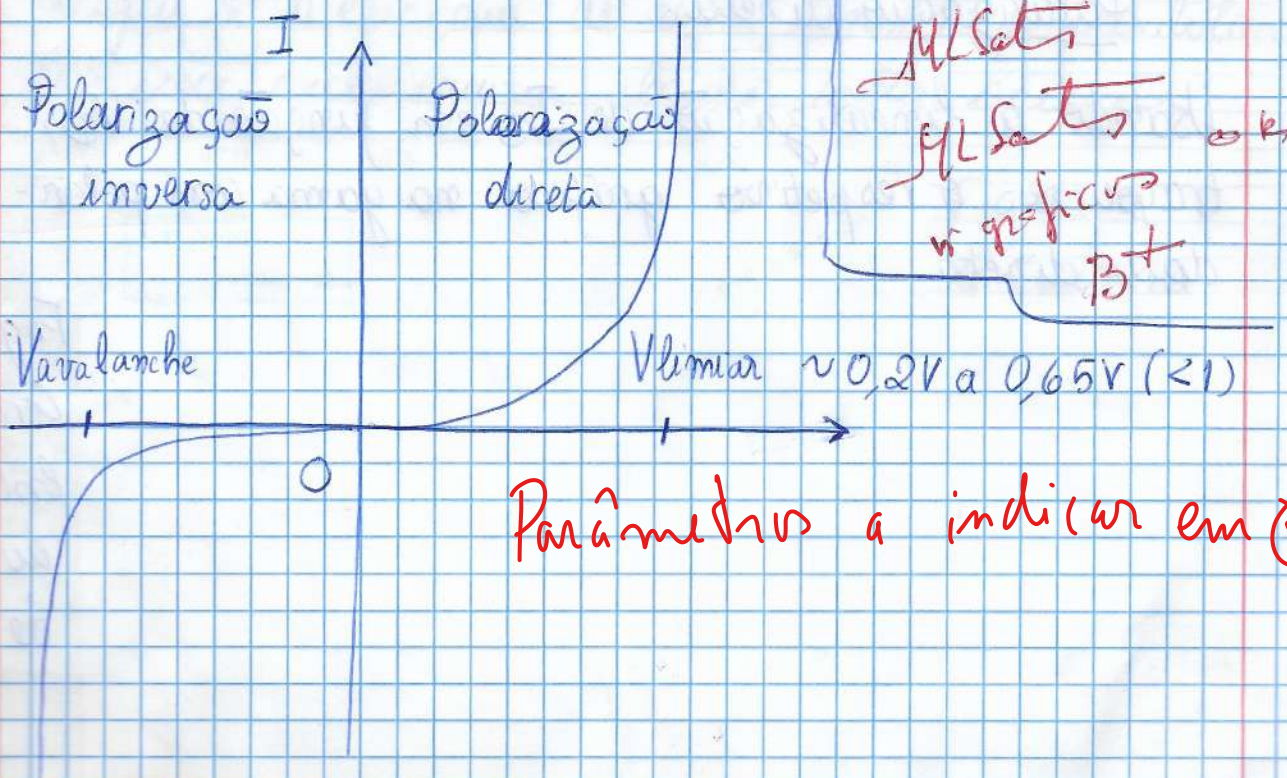 I
Polarização
inversa
Polaraização
direta
MLSatis
MLSatis
gráficos
B+
Vavalanche
Vlimiar ~0,2V a 0,65V (<1)
O
Parâmetros a indicar em